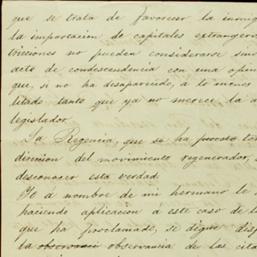 que se trata de favorecer la inmig
la importacion de capitales extrangero
tricciones no pueden considerarse sino
acto de condescendencia con una opin
que, si no ha desaparecido, a lo menos
litado tanto que ya no merece la a
legislador.
La Regencia, que se ha puesto
direccion del movimiento regenerador,
desconocer esta verdad
Yo á nombre de mi hermano le
haciendo aplicacion á este caso de l
que ha proclamado, se digne disp
la observancia de las cita